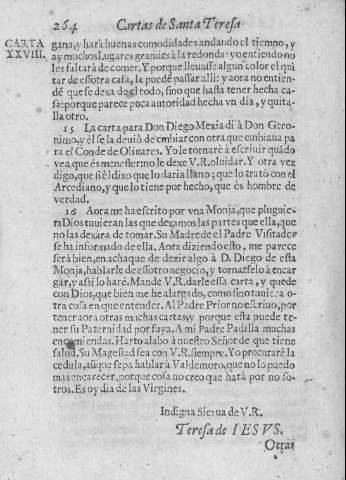 264 Cartas de Santa Teresa
CARTA XXVIII.
gana, y harà buenas comodidades andando el tiempo, y
ay muchos Lugares grandes à la redonda: yo entiendo no
les faltarà de comer. Y porque lleuasse algun color el qui
tar de essotra casa, la puedẽ passar alli: y aora no entien-
dẽ que se dexa del todo, sino que hasta tener hecha ca-
sa: porque parece poca autoridad hecha vn dia, y quita-
lla otro.
15 La carta para Don Diego Mexia dì à Don Gero-
nimo, y èl se la deuiò de embiar con otra que embiaua pa
ra el Conde de Oliuares. Yo le tornarè à escriuir quãdo
vea, que es menester: no le dexe V.R. oluidar. Y otra vez
digo, que si èl dixo que lo daria llano; que lo tratò con el
Arcediano, y que lo tiene por hecho, que es hombre de
verdad.
16 Aora me ha escrito por vna Monja, que pluguie-
ra Dios tuuieran las que dexamos las partes que ella, que
no las dexara de tomar. Su Madre de el Padre Visitador
se ha informado de ella. Aora diziendo esto, me parece
serà bien, en achaque de dezir algo à D. Diego de esta
Monja, hablarle de essotro negocio, y tornarselo à encar
gar, y assi lo harè. Mande V.R. darle essa carta, y quede
con Dios, que bien me he alargado, como sino tuuiera o-
tra cosa en que entender. Al Padre Prior no escriuo, por
tener aora otras muchas cartas, y porque esta puede te-
ner su Paternidad por suya. A mi Padre Padilla muchas
encomiendas. Harto alabo à nuestro Señor de que tiene
salud. Su Magestad sea con V.R. siempre. Yo procurarè la
cedula, aũque sepa hablar à Valdemoro, que no lo puedo
mas encarecer, porque cosa no creo que harà por no so-
tros. Es oy dia de las Virgines.
Indigna Sierua de V.R.
Teresa de IESVS.
Otras